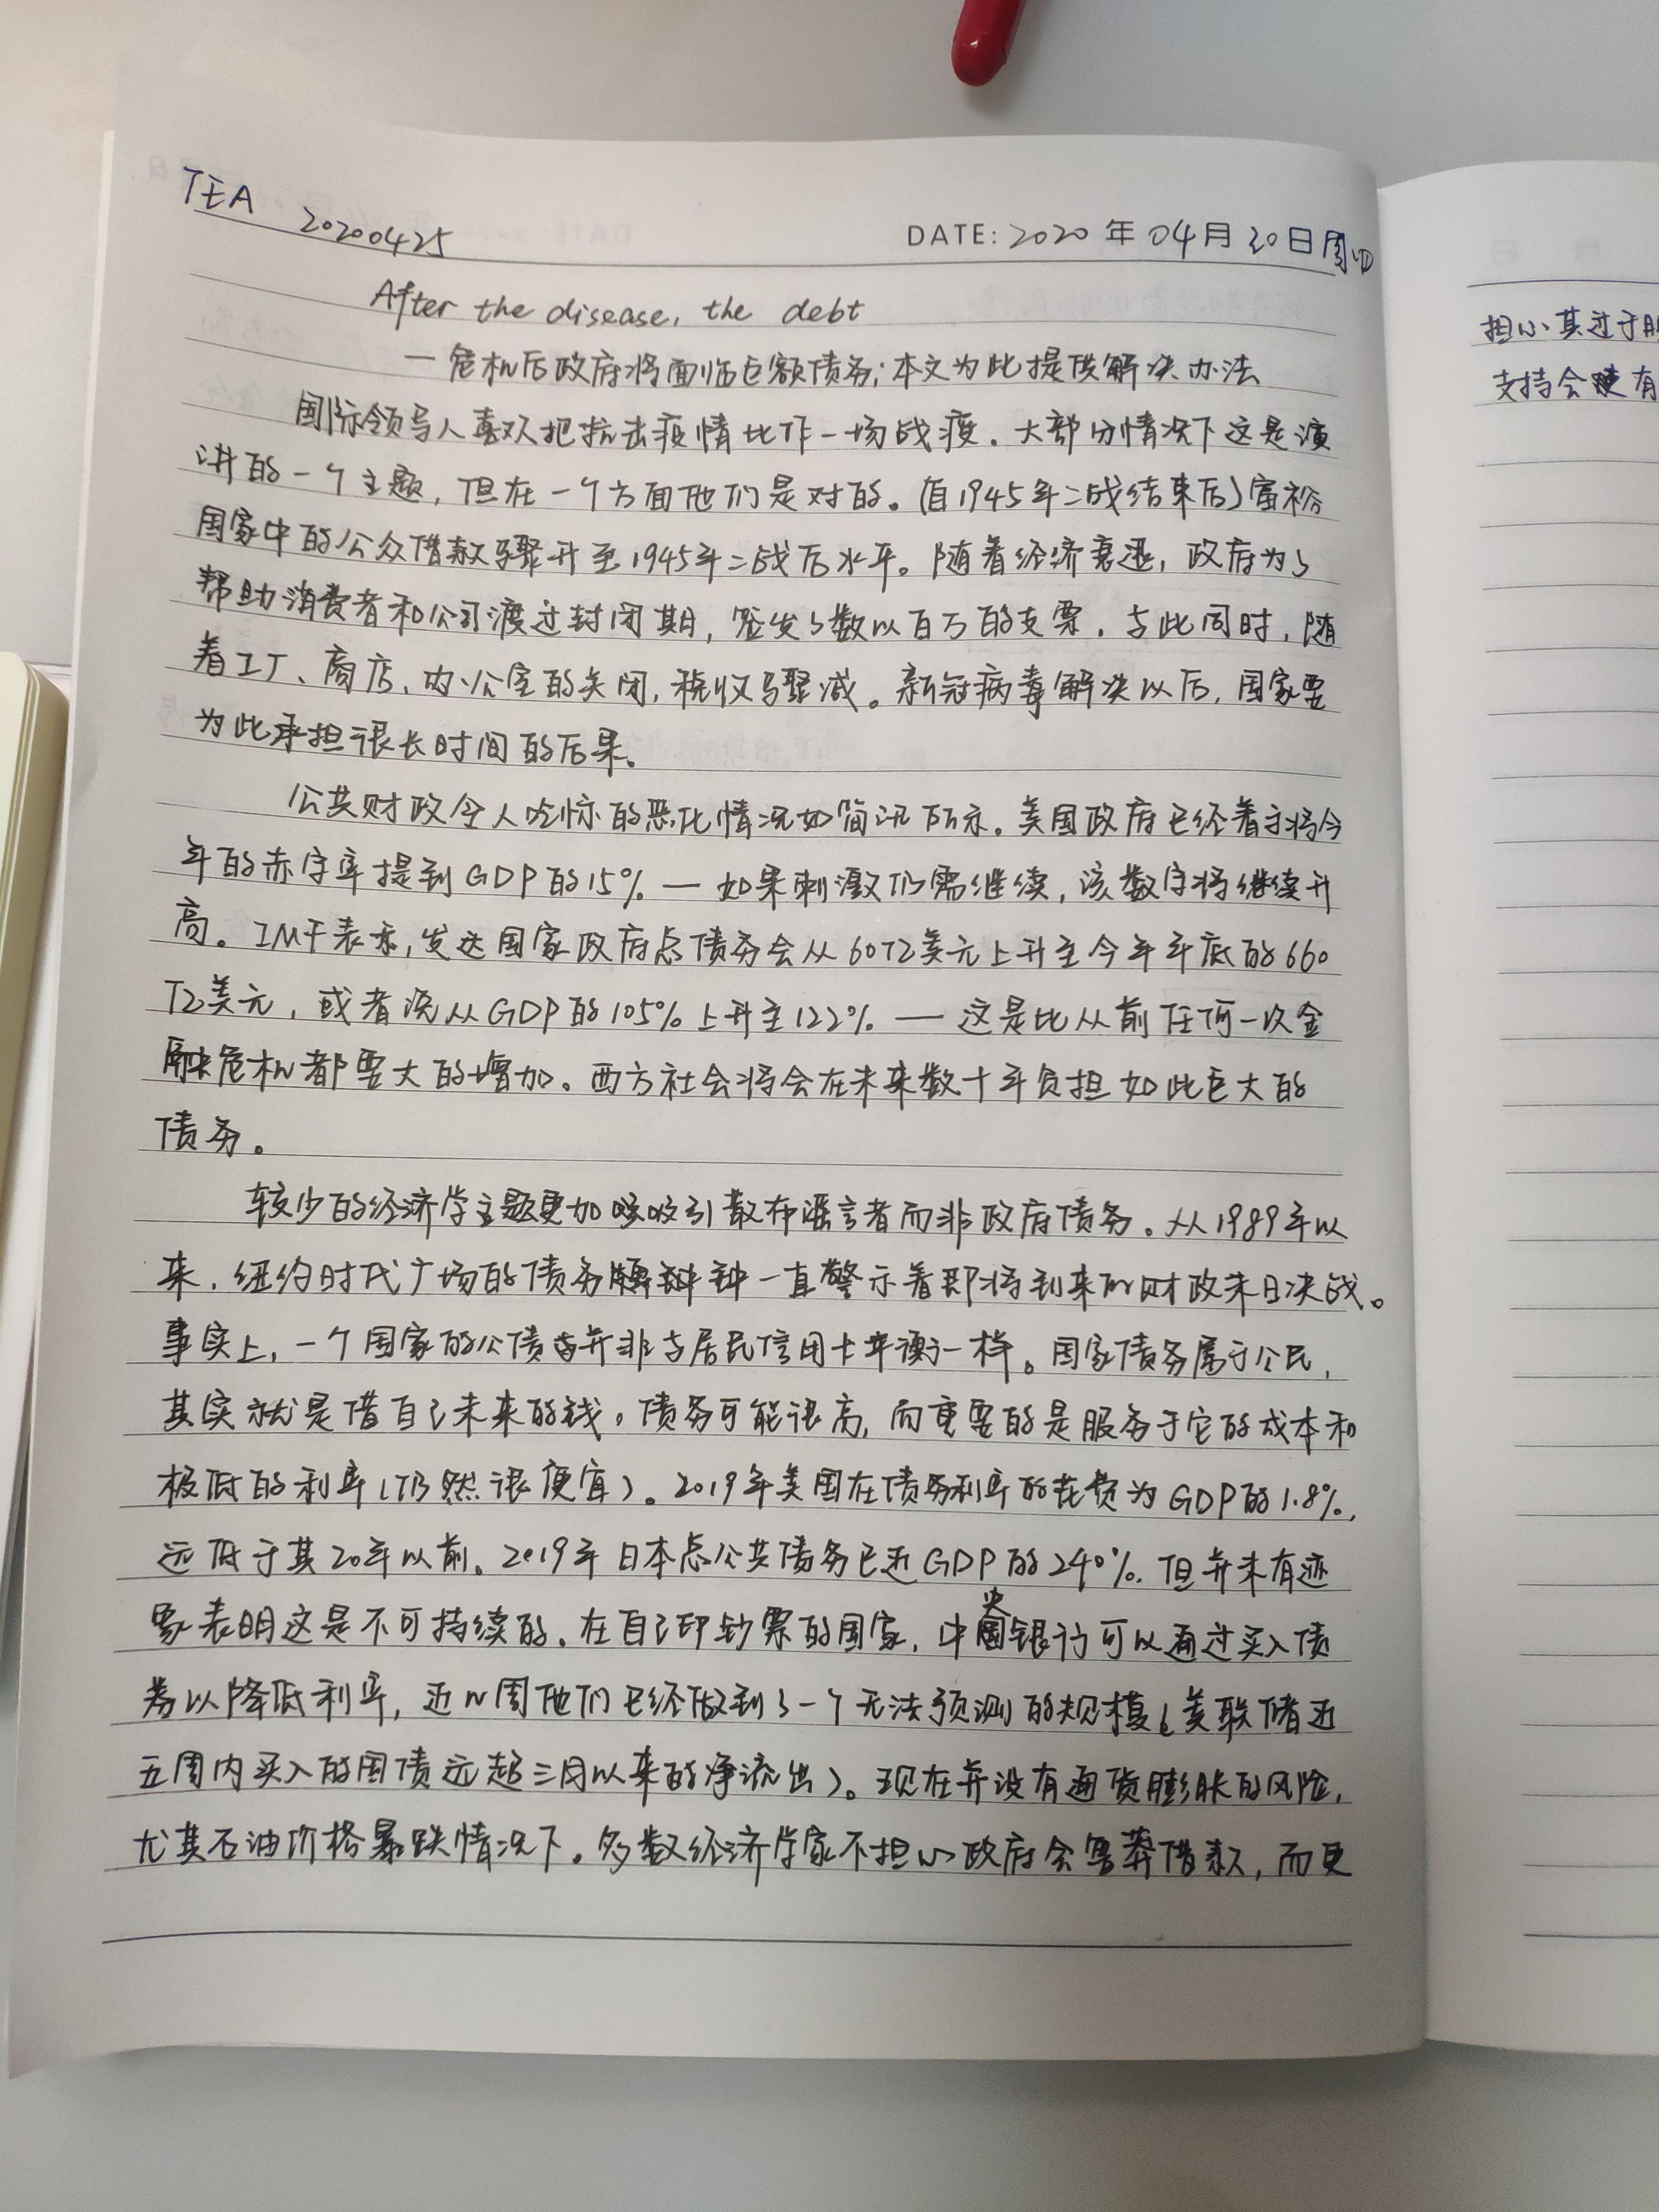 TEA 20200425
DATE: 2020 年 04 月 30 日 周四
After the disease, the debt
— 危机后政府将面临巨额债务;本文为此提供解决办法
国际领导人喜欢把抗击疫情比作一场战疫. 大部分情况下这是演
讲的一个主题, 但在一个方面他们是对的。(自1945年二战结束后)富裕
国家中的公众借款骤升至1945年二战后水平。随着经济衰退, 政府为了
帮助消费者和公司渡过封闭期, 签发了数以百万的支票. 与此同时, 随
着工厂、商店、办公室的关闭, 税收骤减。新冠病毒解决以后, 国家要
为此承担很长时间的后果。
公共财政令人吃惊的恶化情况如简讯所示。美国政府已经着手将今
年的赤字率提到GDP的15% — 如果刺激仍需继续, 该数字将继续升
高。IMF表示, 发达国家政府总债务会从60万亿美元上升至今年年底的66万亿
美元, 或者说从GDP的105%上升至122% — 这是比从前任何一次金
融危机都要大的增加。西方社会将会在未来数十年负担如此巨大的
债务。
较少的经济学主题更加吸引散布谣言者而非政府债务。从1989年以
来, 纽约时代广场的债务钟一直警示着即将到来的财政末日决战。
事实上, 一个国家的公债并非与居民信用卡平衡一样。国家债务属于公民,
其实就是借自己未来的钱。债务可能很高, 而重要的是服务于它的成本和
极低的利率(仍然很便宜)。2019年美国在债务利率的花费为GDP的1.8%,
远低于其20年以前。2019年日本总公共债务已近GDP的240%. 但并未有迹
象表明这是不可持续的. 在自己印钞票的国家, 中央银行可以通过买入债
券以降低利率, 近几周他们已经做到了一个无法预测的规模(美联储近
五周内买入的国债远超三月以来的净流出)。现在并没有通货膨胀的风险,
尤其石油价格暴跌情况下. 多数经济学家不担心政府会鲁莽借款, 而更
担心其过于
支持会使有